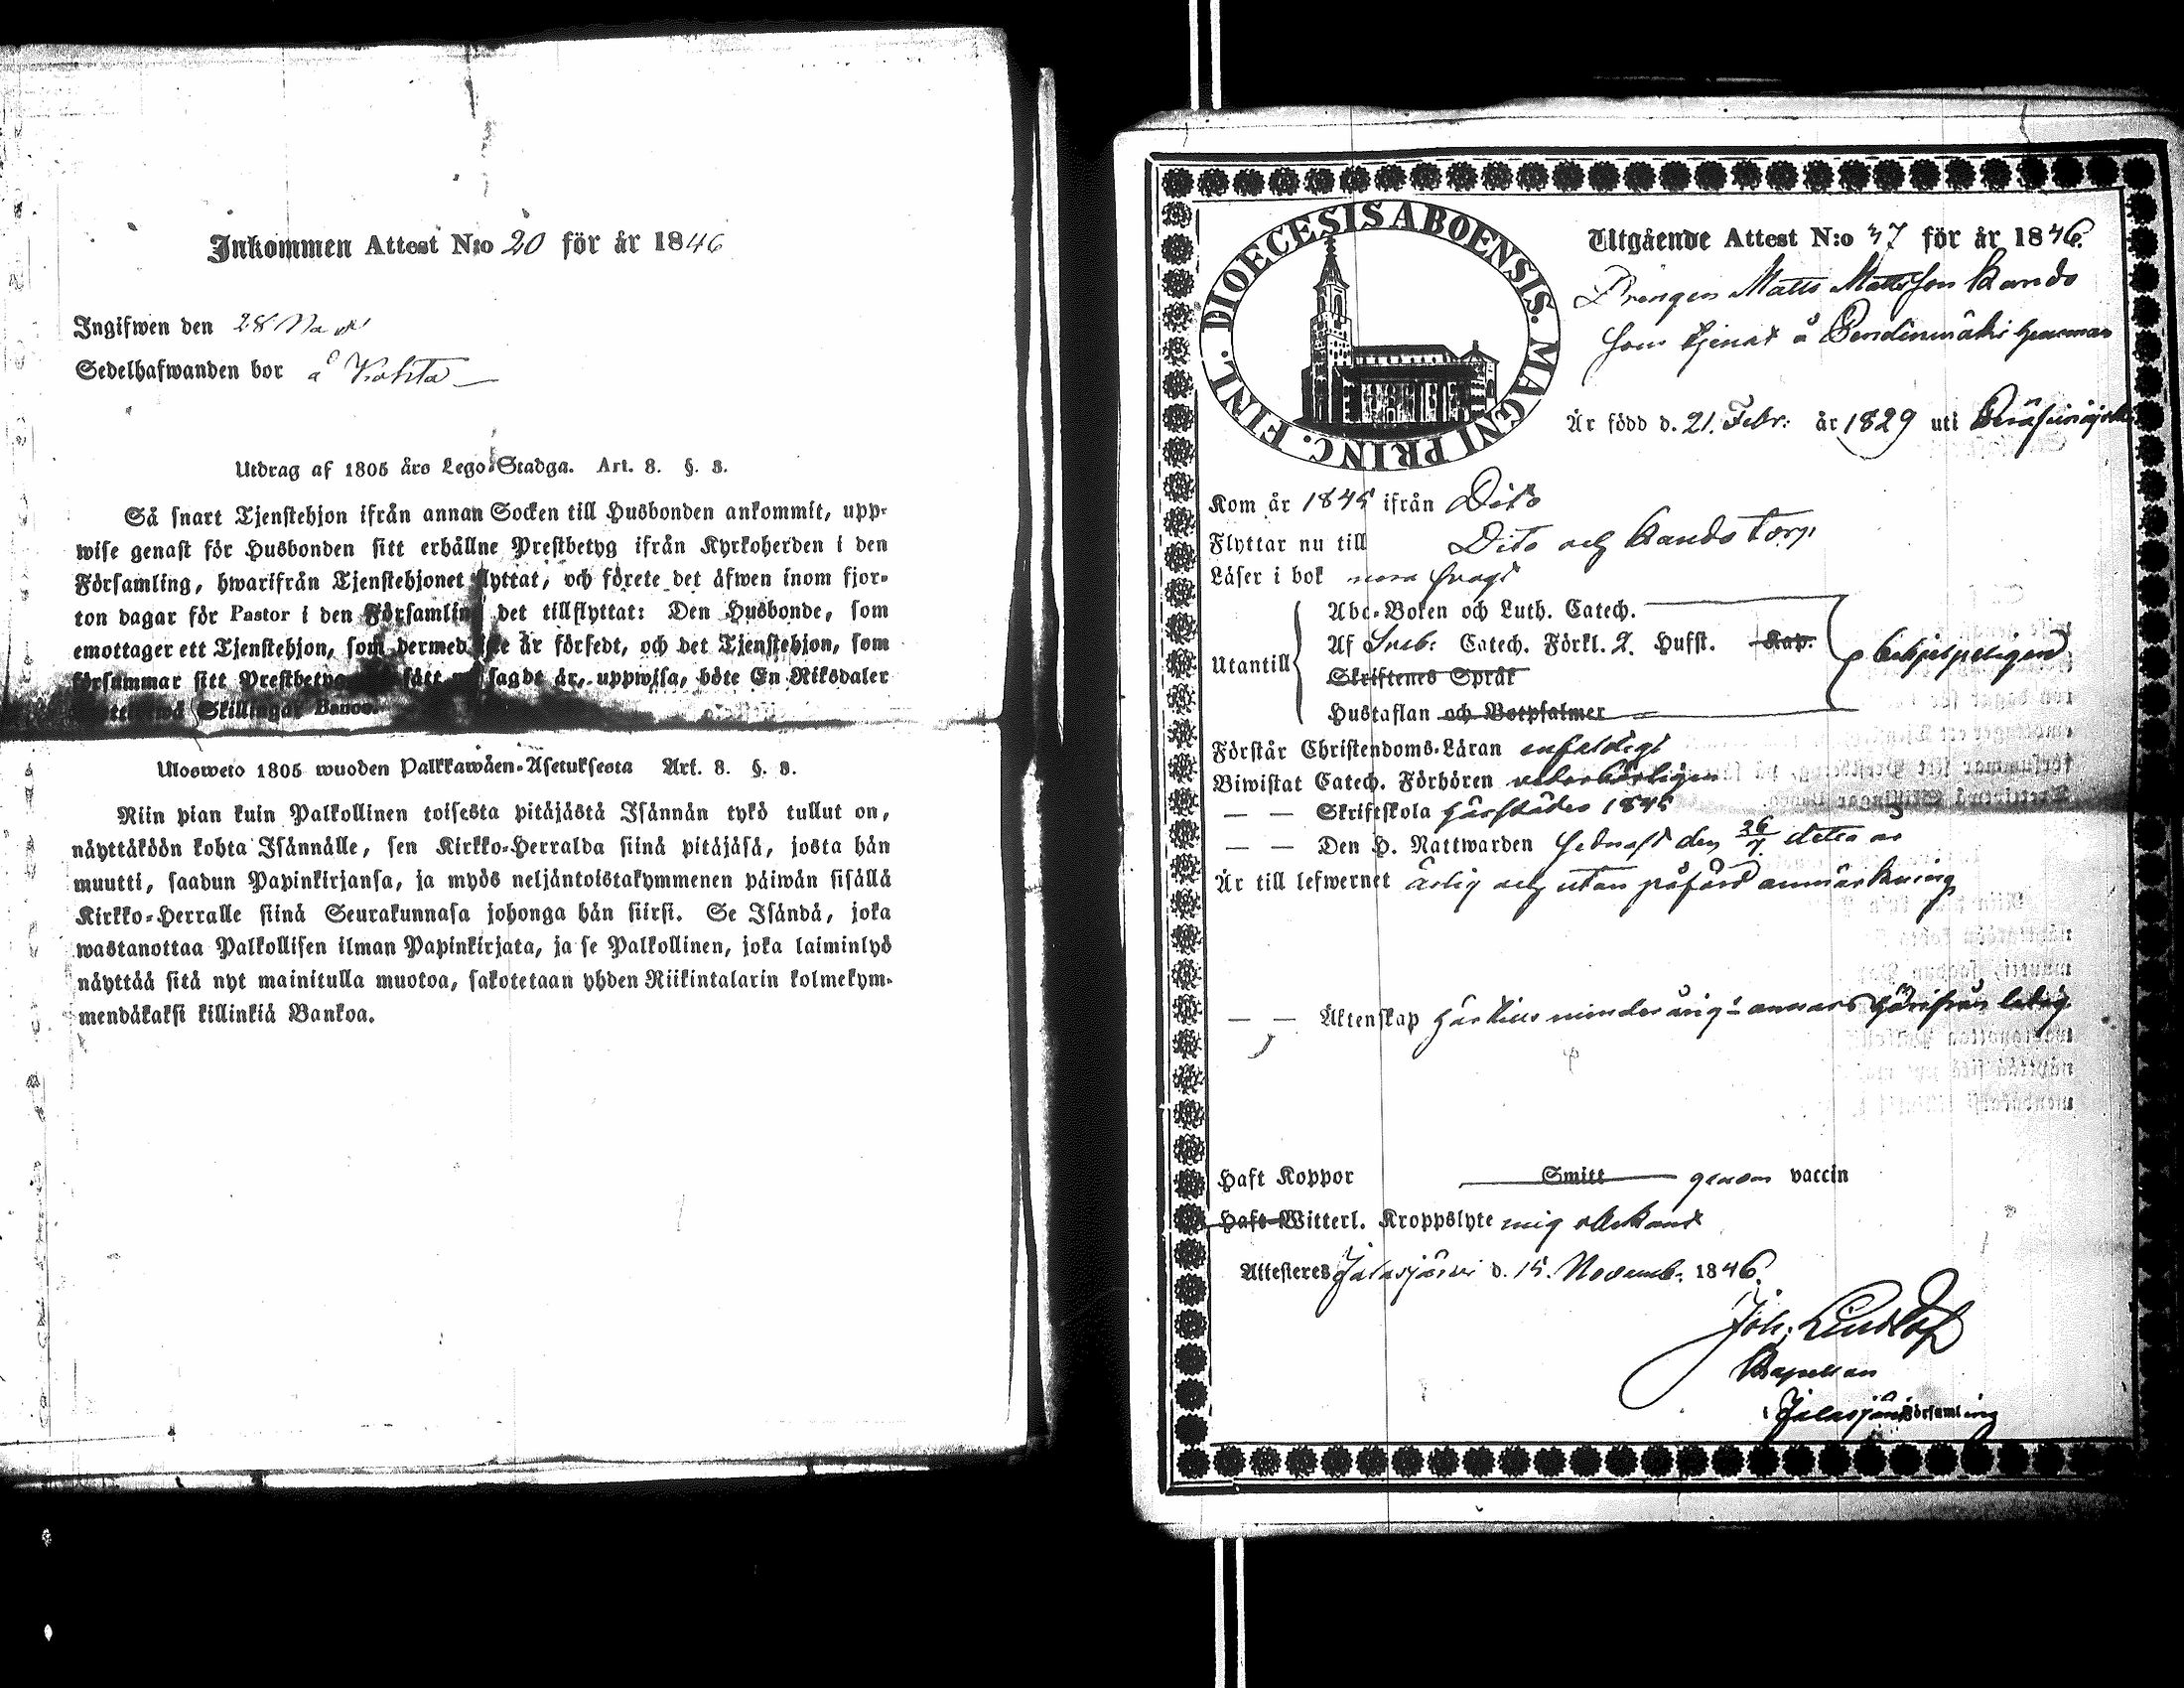 Inkommen Attest N:o 20 för år 1846
Ingifwen den 28 Nov
Sedelhafwanden bor å
Utdrag af 1805 års Lego-Stadga. Art. 8. §. 8.
Så snart Tjenstehjon ifrån annan Socken till Husbonden ankommit, upp-
wise genast för Husbonden sitt erhållne Prestbetyg ifrån Kyrkoherden i den
Församling, hwarifrån Tjenstehjonet flyttat, och förete det äfwen inom fjor-
ton dagar för Pastor i den Församling det tillflyttat: Den Husbonde, som
emottager ett Tjenstehjon, som dermed icke är försedt, och det Tjenstehjon, som
försummar sitt Prestbetyg sagdt är, uppwisa, böte En Riksdaler
Skillingar Banco.
Ulosweto 1805 wuoden Palkkawäen-Asetuksesta Art. 8. §. 8.
Niin pian kuin Palkollinen toisesta pitäjästä Isännän tykö tullut on,
näyttäköön kohta Isännälle, sen Kirkko-Herralda siinä pitäjäsä, josta hän
muutti, saadun Papinkirjansa, ja myös neljäntoistakymmenen päiwän sisällä
Kirkko-Herralle siinä Seurakunnasa johonga hän siirsi. Se Isändä, joka
wastanottaa Palkollisen ilman Papinkirjata, ja se Palkollinen, joka laiminlyö
näyttää sitä nyt mainitulla muotoa, sakotetaan yhden Riikintalarin kolmekym-
mendäkaksi killinkiä Bankoa.
DIOECESIS ABOENSIS. MAGNI PRINC. FINL.
Utgående Attest N:o 47 för år 1846.
Drengen Matts Mattsson Kando
som tjenat å hemman
Är född d. 21. Febr: år 1829 uti
Kom år 1845 ifrån Dito
Flyttar nu till Dito och Kando torp
Läser i bok svagt
Utantill
Abc-Boken och Luth. Catech.
Af Sveb: Catech. Förkl. 2. Hufst. Kap.
Skriftenes Språk
Hustaflan och Botpsalmer
behjelpeligen
Förstår Christendoms-Läran enfaldigt
Biwistat Catech. Förhören vederbörligen
— — Skriftskola härstädes 1845
— — Den H. Nattwarden sednast den 26/7 detta år
Är till lefwernet ärlig och utan påförd anmärkning
— — Äktenskap härtills minderårig annars härifrån ledig
Haft Koppor Smitt genom vaccin
Haft Witterl. Kroppslyte mig obekant
Attesteres Jalasjärvi d. 15. Novemb. 1846.
Joh. Lindlöf
Kapellan
i Jalasjärvi Församling